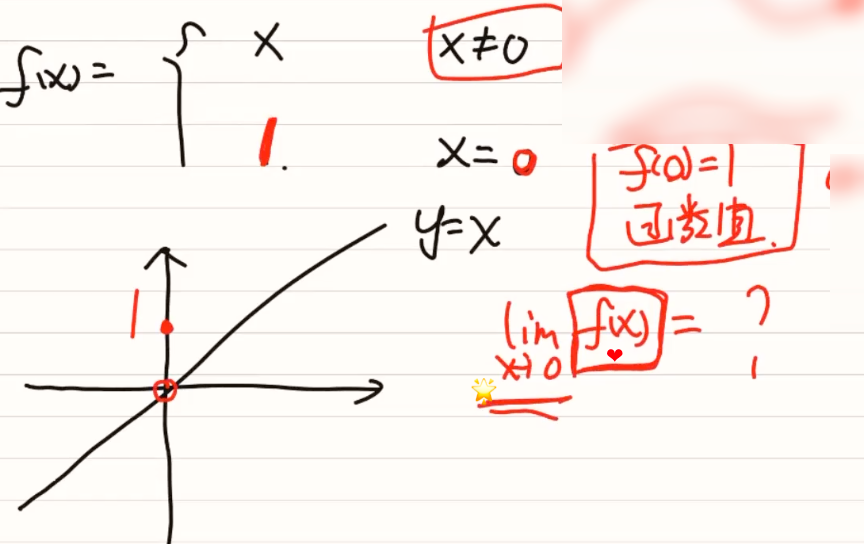 f(x) = { x x≠0
1. x=0
f(0)=1
函数值.
y=x
1
lim f(x) = ?
x→0